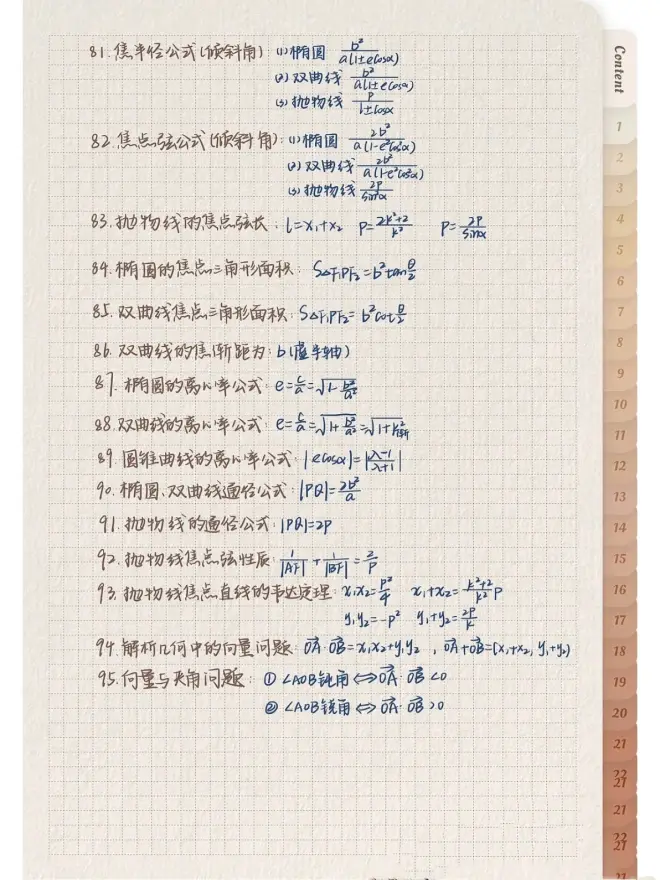 Content
81.焦半径公式(倾斜角) (1)椭圆 b²/a(1±ecosα)
(2)双曲线 b²/a(1±ecosα)
(3)抛物线 p/1±cosα
82.焦点弦公式(倾斜角):(1)椭圆 2b²/a(1-e²cos²α)
(2)双曲线 2b²/a(1-e²cos²α)
(3)抛物线 2p/sin²α
83.抛物线的焦点弦长:l=x₁+x₂ p=2k²+2/k² p=2p/sin²α
84.椭圆的焦点三角形面积: S△F₁PF₂=b²tanθ/2
85.双曲线焦点三角形面积:S△F₁PF₂=b²cotθ/2
86.双曲线的焦渐距为:b(虚半轴)
87.椭圆的离心率公式:e=c/a=√1-b²/a²
88.双曲线的离心率公式:e=c/a=√1+b²/a²=√1+k²渐
89.圆锥曲线的离心率公式:|ecosα|=|λ-1/λ+1|
90.椭圆、双曲线通径公式:|PQ|=2b²/a
91.抛物线的通径公式:|PQ|=2p
92.抛物线焦点弦性质:1/|AF|+1/|BF|=2/p
93.抛物线焦点直线的韦达定理:x₁x₂=p²/4 x₁+x₂=k²+2/k² p
y₁y₂=-p² y₁+y₂=2p/k
94.解析几何中的向量问题:OA·OB=x₁x₂+y₁y₂ ,OA+OB=(x₁+x₂,y₁+y₂)
95.向量与夹角问题: ①∠AOB钝角⇔OA·OB<0
②∠AOB锐角⇔OA·OB>0
1
2
3
4
5
6
7
8
9
10
11
12
13
14
15
16
17
18
19
20
21
22
21
21
22
21